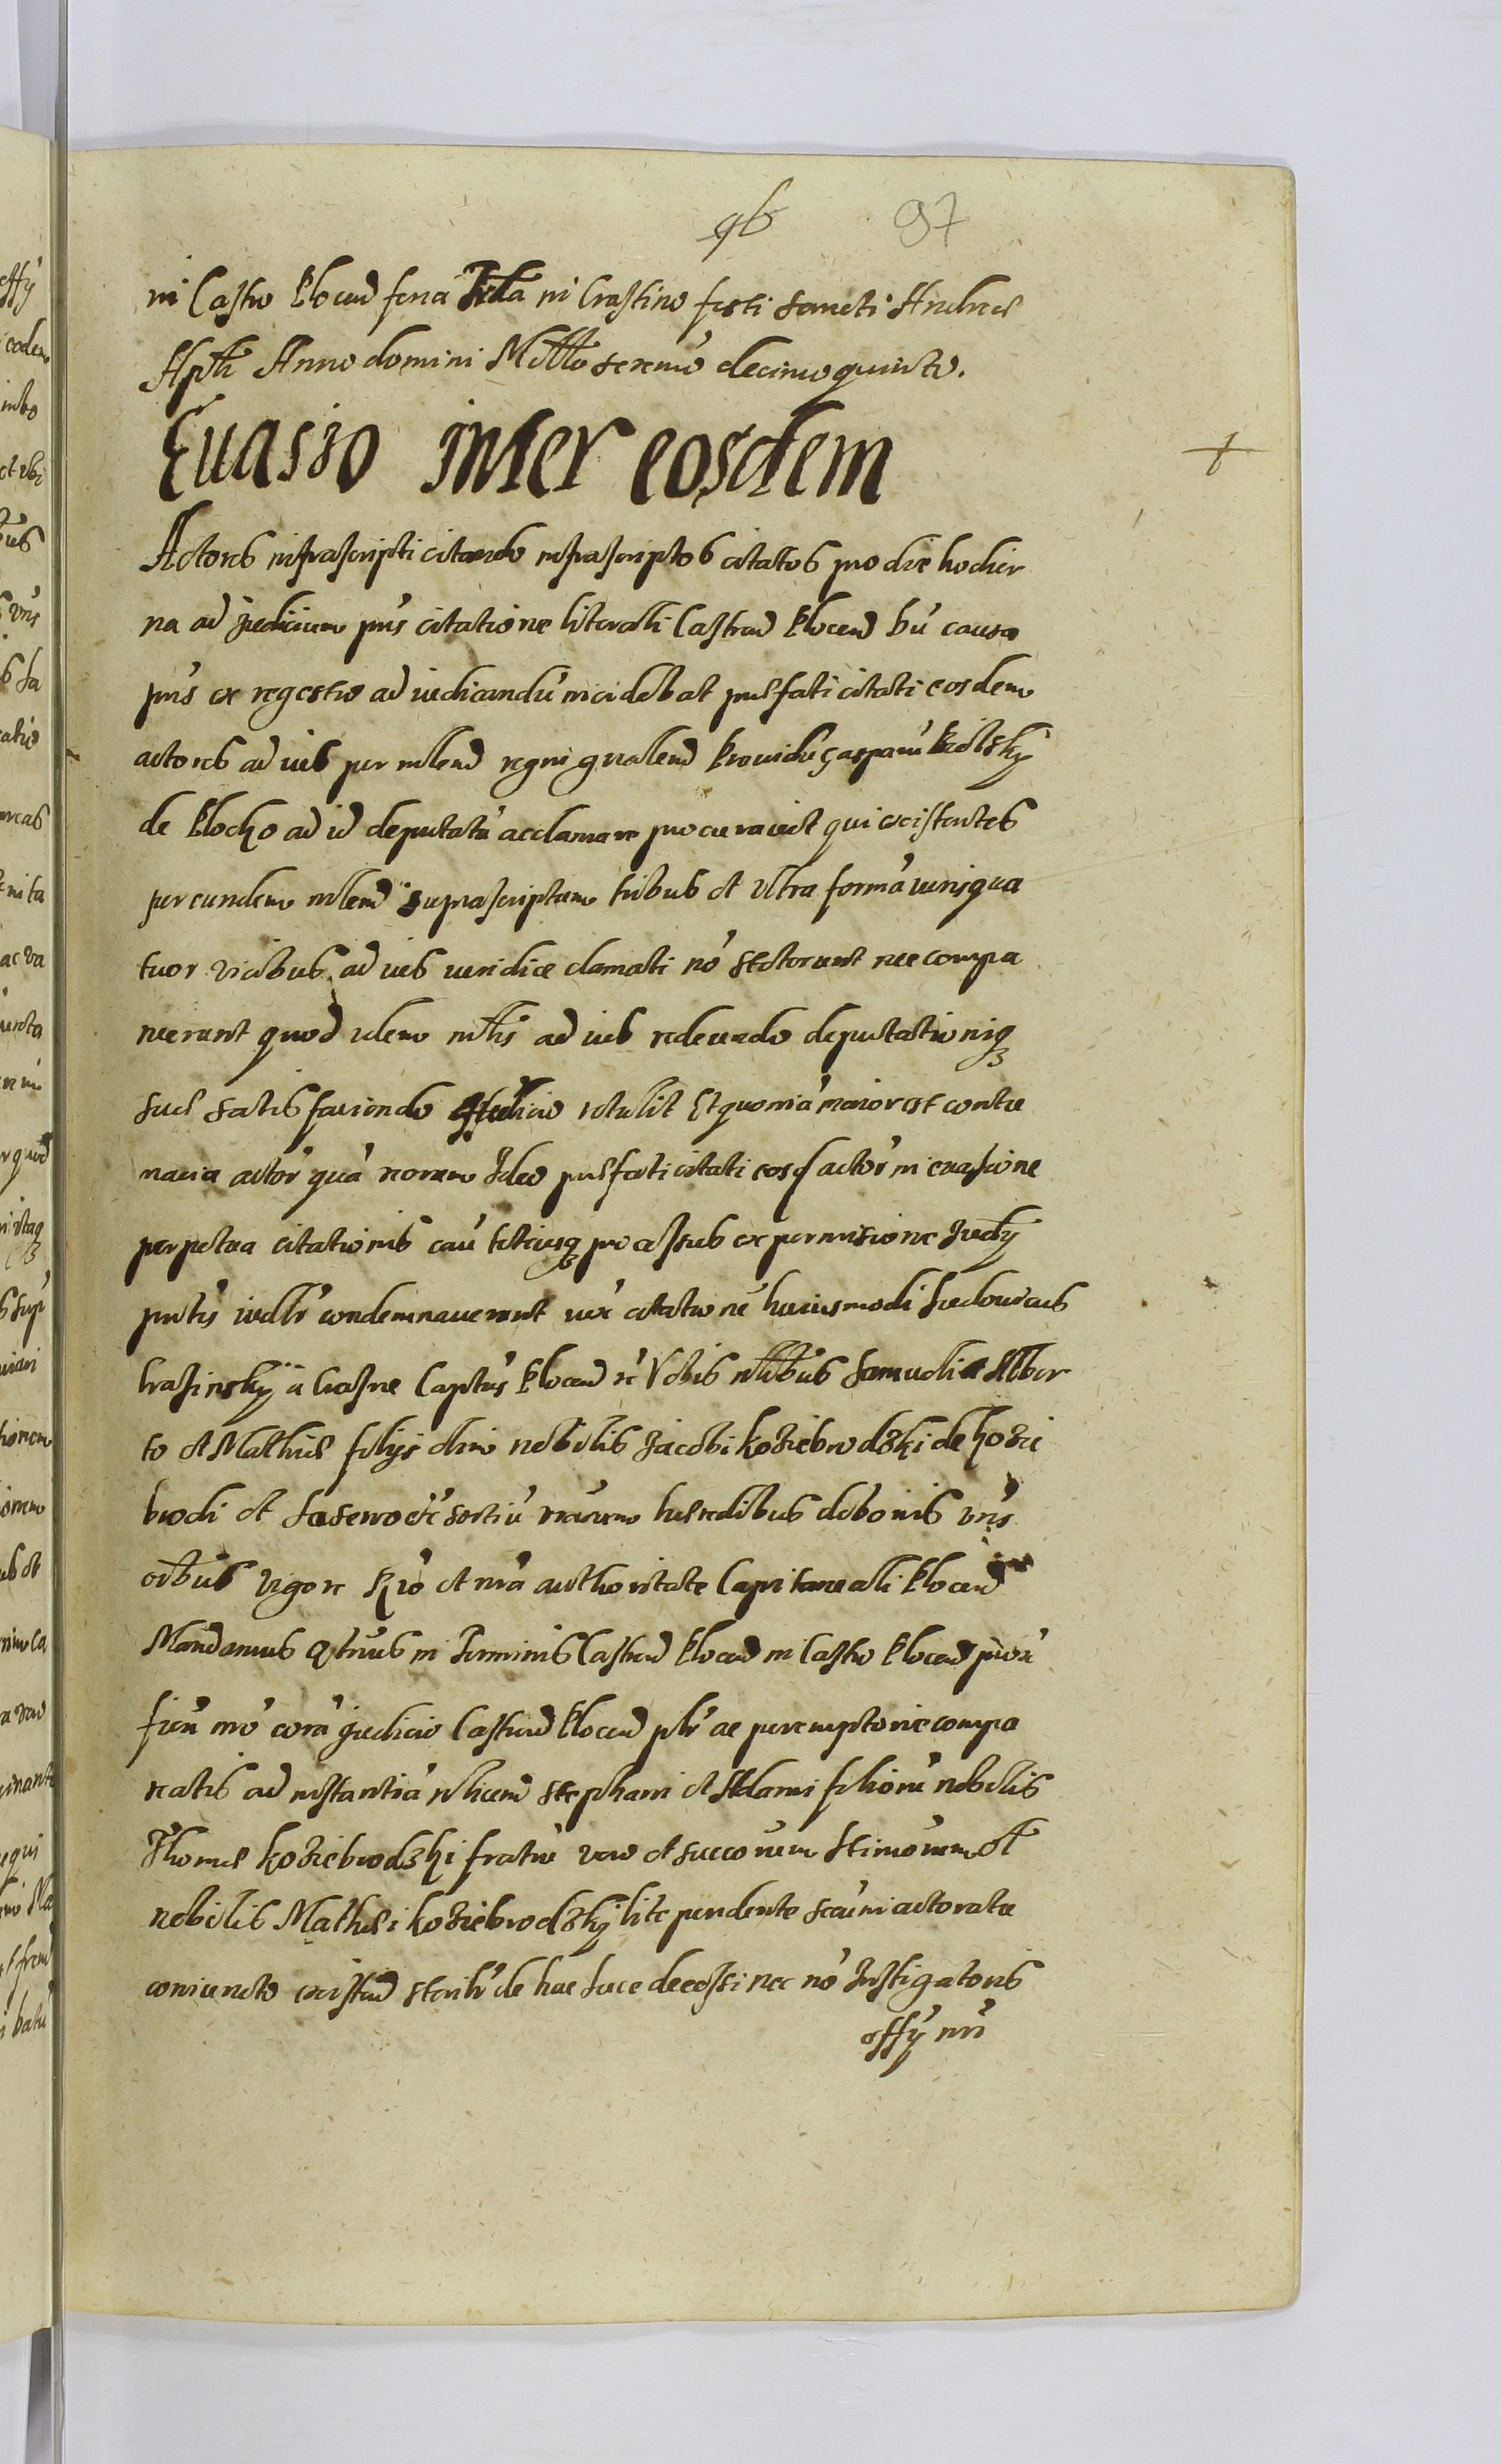 96 97
in Castro Plocen feria 3tia in Crastino festi Sancti Andreæ
Apli Anno domini Millo sexcmo decimo quinto.
Evasio inter eosdem
Actores infrascripti citando infrascriptos citatos pro die hodier
na ad judicium pns citatione literali Castren Plocen hu causa
pns ex regestro ad iudicandu incidebat præfati citati eosdem
actores ad ius per mlem regni gnalem Providu Casparu
de Plocko ad id deputatu acclamare procuraverut qui existentes
per eundem mlem suprascriptum tribus et ultra forma iuris qua
tuor vicibus ad ius iuridice clamati no steterunt nec compa
ruerunt quod idem mtlis ad ius redeundo deputationiq
suæ satisfaciendo Judicio retulit Et quonia maior est contu
macia actor qua reorum Ideo præfati citati eosd actor in evasione
perpetua citationis cau totiusq processus ex permissione Judy
pntis iudlr condemnaverunt vix citatione huiusmodi Sudouicus
krasinsky a krasne Captus Plocen et Vobis nlibus Samueli Alber
to et Mathiæ filys olim nobilis Jacobi koziebrodzki de kozie
brodi et &c sortiu vrarum hæredibus de bonis vris
oibus vigore Rio et nra authoritate Capitaneali Plocen
Mandamus qtnus in Terminis Castren Plocen in Castro Plocen prox
fien mo cora judicio Castren Plocen plr ac peremptorie compa
reatis ad instantia nlium Stephani et Adami filioru nobilis
Thomæ koziebrodzki fratru vero et succorum sterimorum et
nobilis Mathei koziebrodzky lite pendente secu in actoratu
coniuncto existen sterilr de hac luce decessi nec no Instigatoris
offy nri